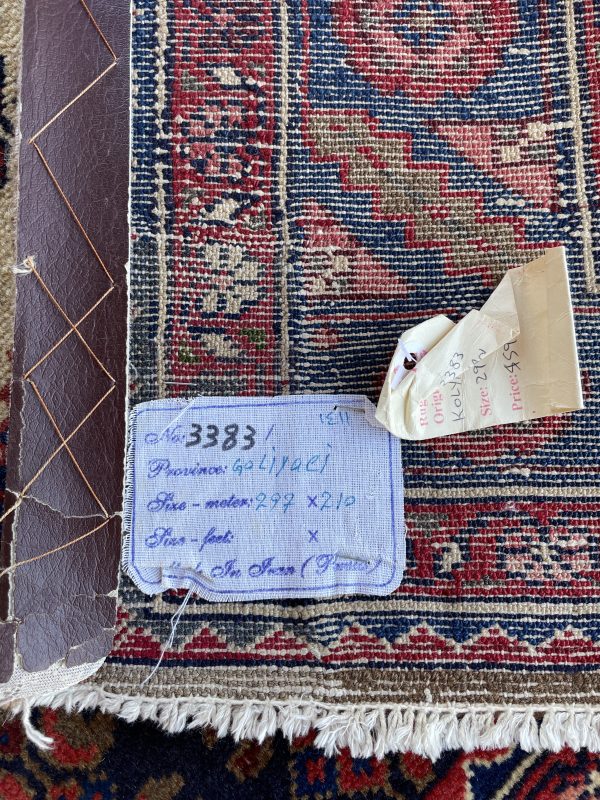 No: 3383 /
Province: Goliyaei
Size - meter: 297 x 210
Size - feet: x
Made In Iran (Persia)
Rug
Orig
KOLY383
Size: 29
Price: